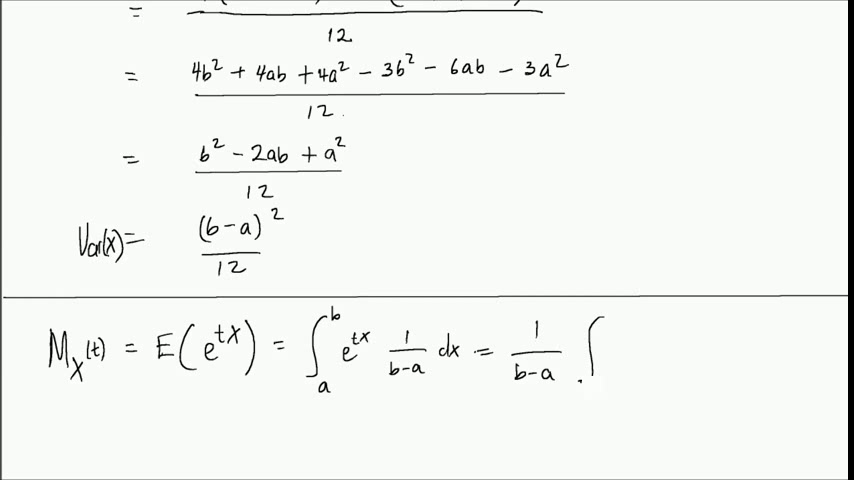 = 12
= 4b² + 4ab + 4a² - 3b² - 6ab - 3a² / 12
= b² - 2ab + a² / 12
Var(X) = (b-a)² / 12
M_X(t) = E(e^{tX}) = ∫_a^b e^{tx} 1/(b-a) dx = 1/(b-a) ∫